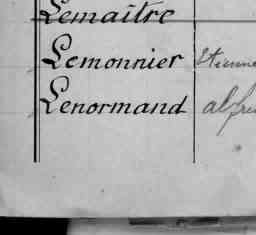 Lemaître
Lemonnier Etienne
Lenormand alfre